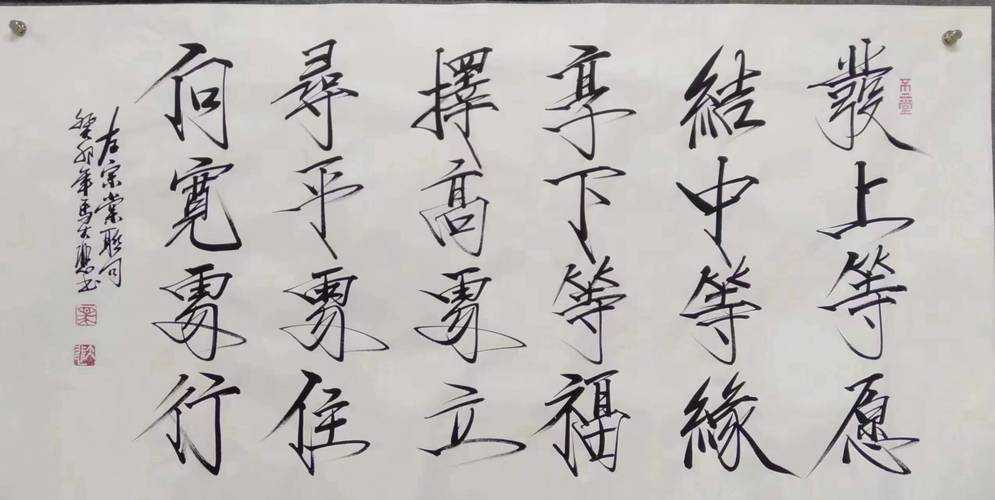 發上等愿
結中等緣
享下等福
擇高處立
尋平處住
向寬處行
左宗棠聯句
癸卯年馬大